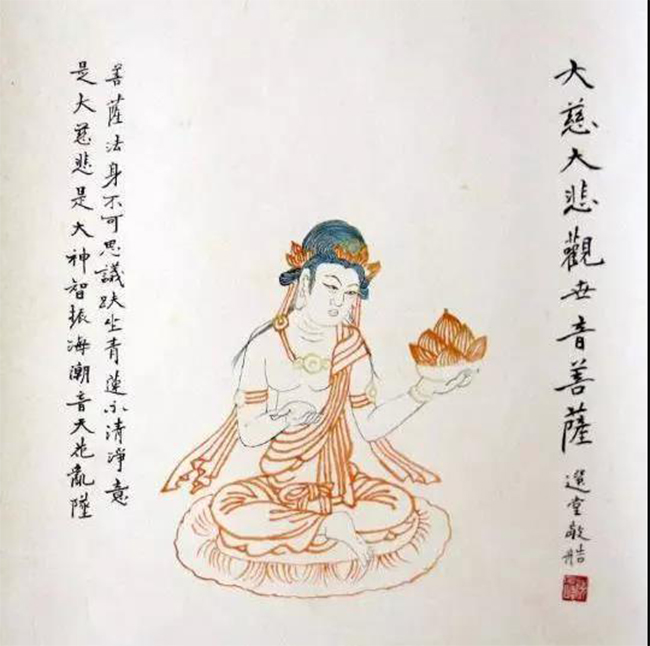 大慈大悲觀世音菩薩
選堂敬艁
菩薩法身不可思議趺坐青蓮示清淨意
是大慈悲是大神智振海潮音天花亂墜